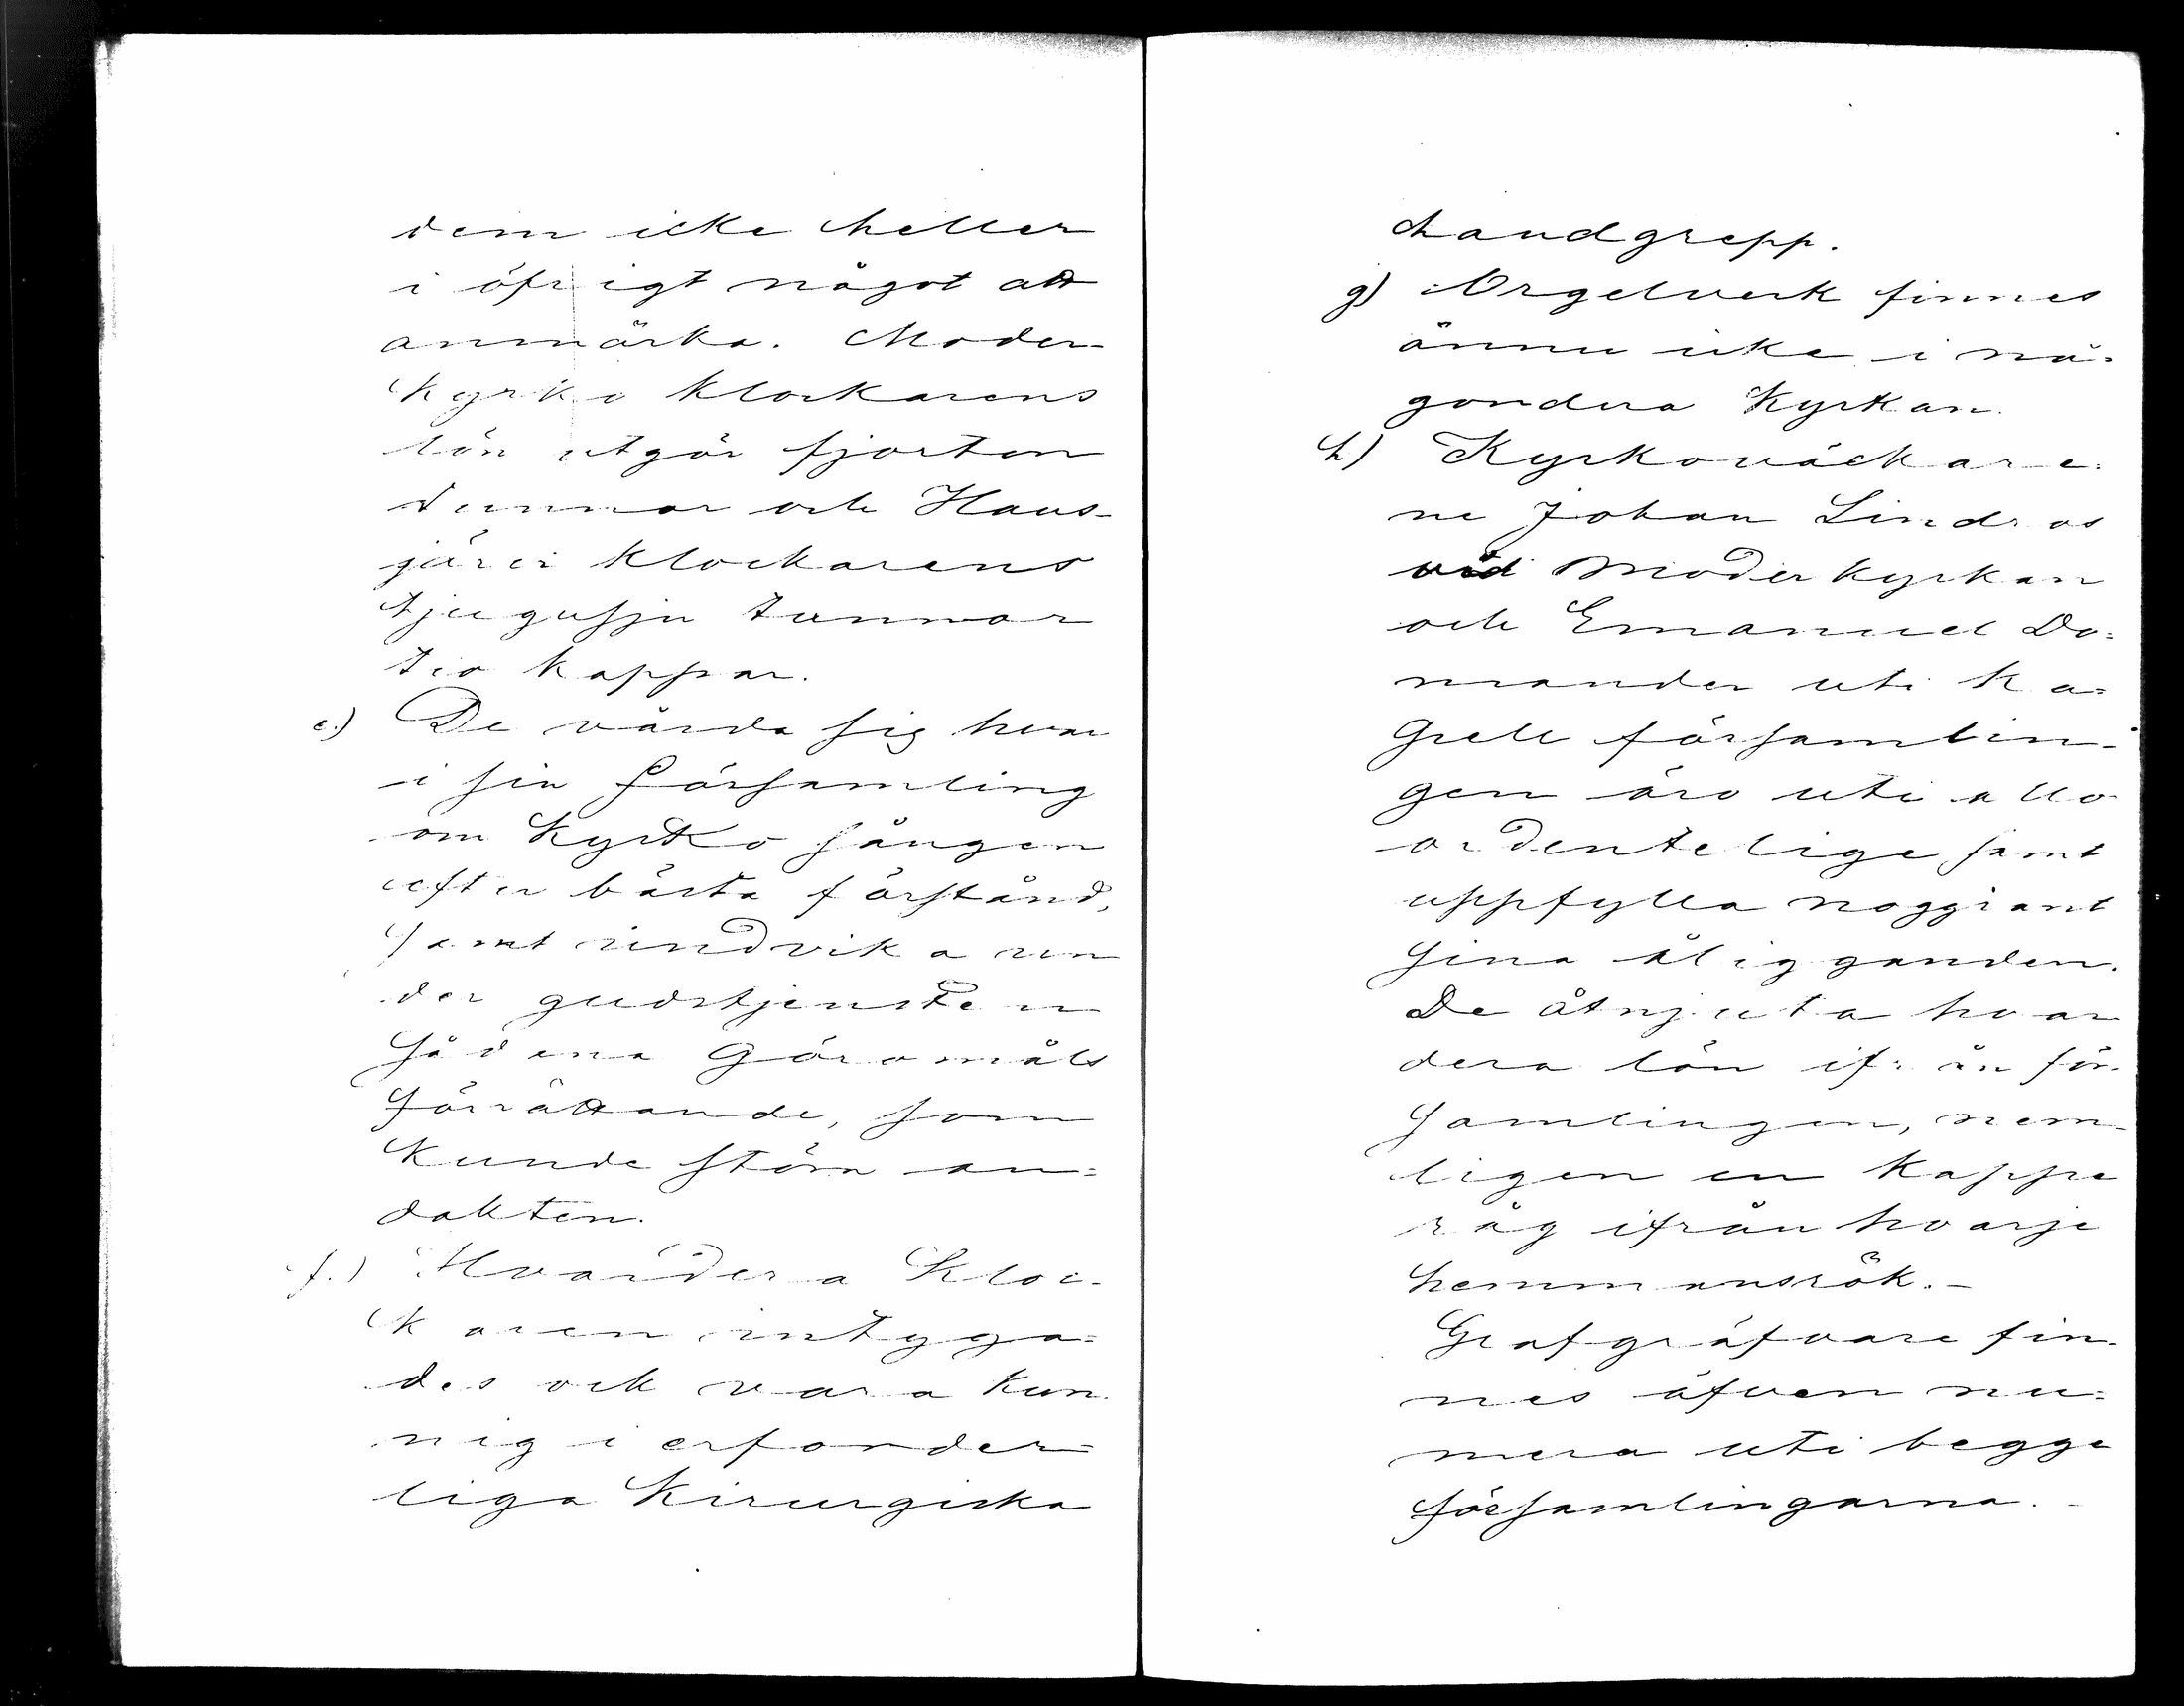 dem icke heller
i öfrigt något att
anmärka. Moder-
Kyrko Klockarens
lön utgör fjorton
tunnor och Haus-
järvi Klockarens
tjugusju tunnor
tio kappar.
e.) De vårda sig hvar
i sin församling
om Kyrko sången
efter bästa förstånd,
samt undvika un
der gudstjensten
sådana Göromåls
förrättande, som
Kunde störa an=
dakten.
f.) Hvardera Kloc-
Karen intyga=
des ock vara Kun
nig i erforder-
liga Kirurgiska
handgrepp.
g) Orgelverk finnes
ännu icke i nå=
gondera Kyrkan.
h) Kyrkoväckare=
ne Johan Lindros
vid Moderkyrkan
och Emanuel Do=
mander uti Ka=
pell församlin=
gen äro uti allo
ordentelige samt
uppfylla noggrant
sina åligganden.
De åtnjuta hvar
dera lön ifrån för-
samlingen, nem-
ligen en Kappe
råg ifrån hvarje
hemmansrök. -
Grafgräfvare fin-
nes äfven nu=
mera uti begge
församlingarna. -